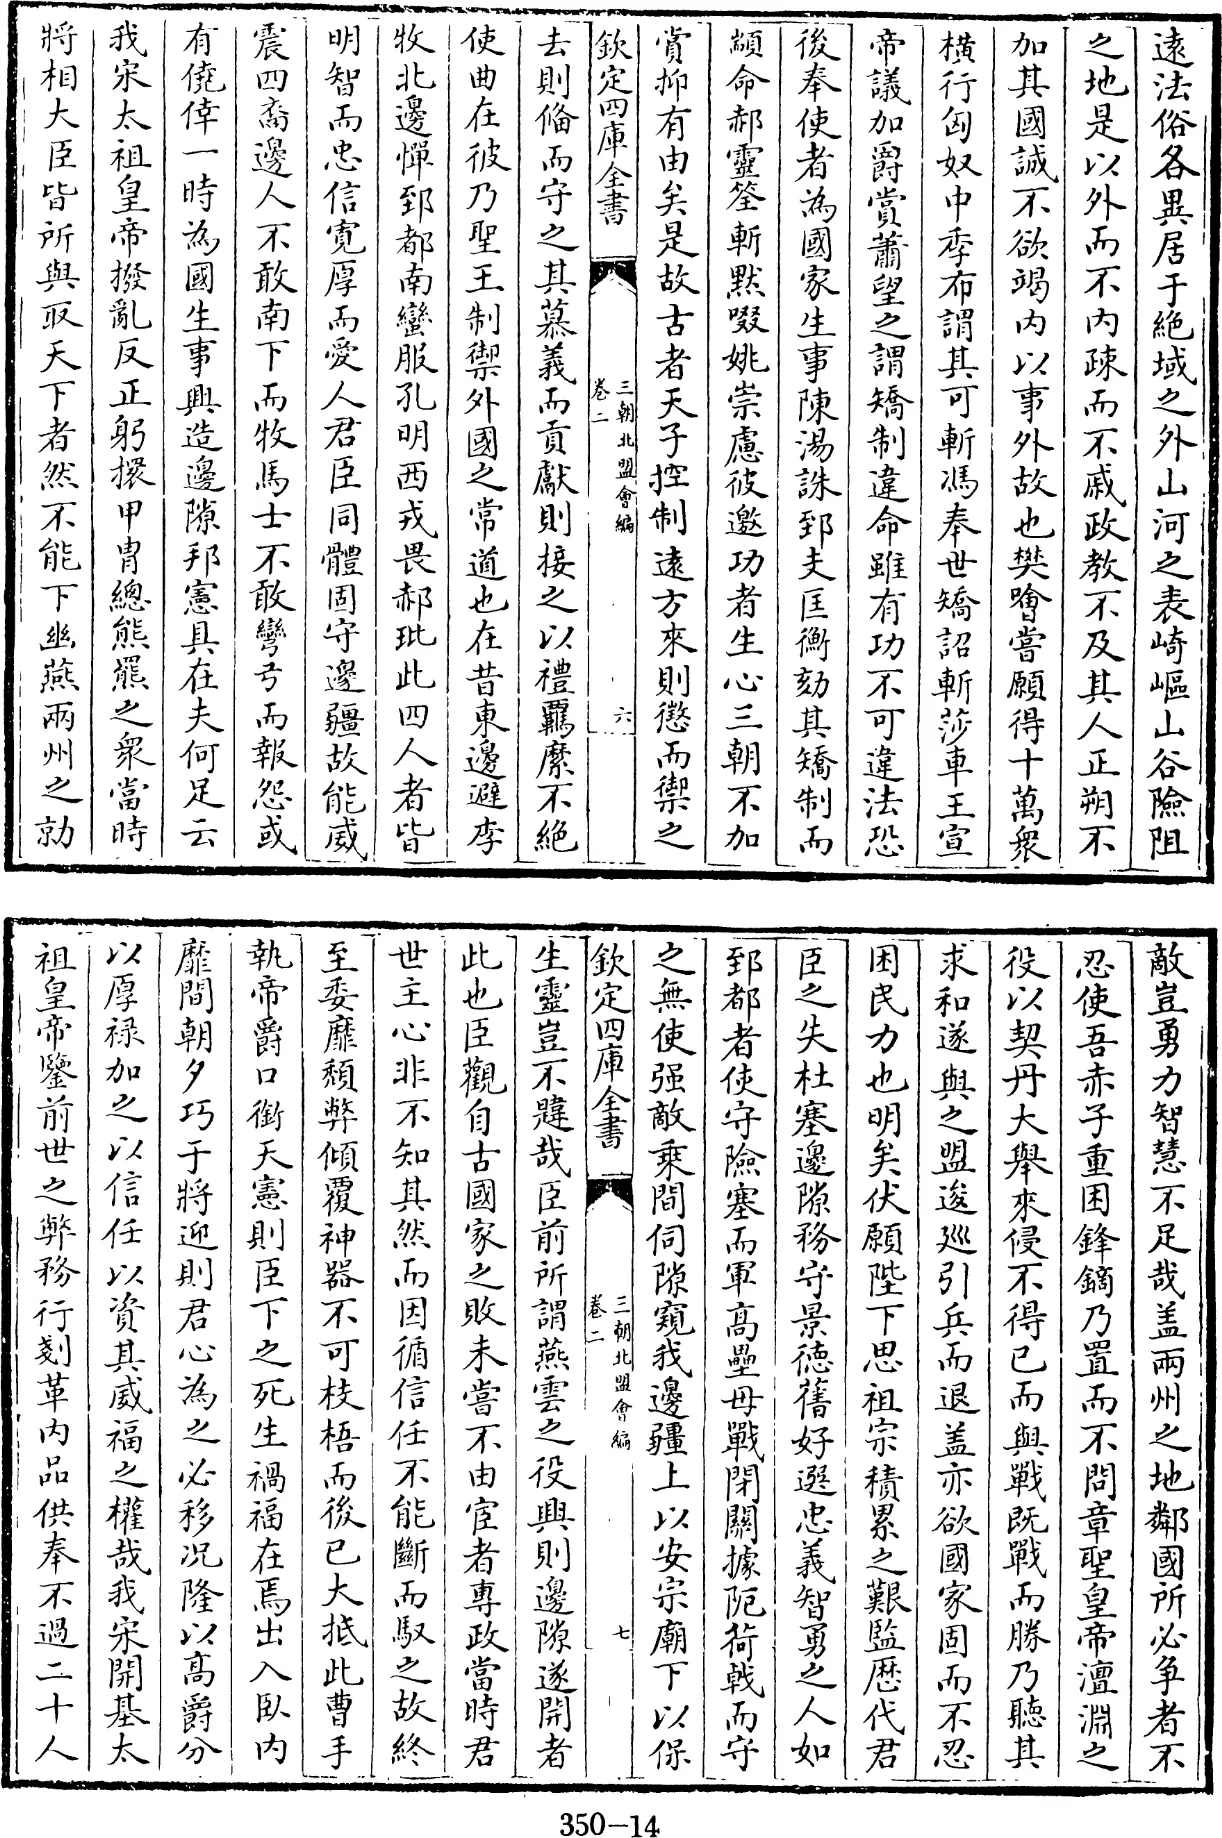 遠法俗各異居于絶域之外山河之表崎嶇山谷險阻
之地是以外而不内疎而不戚政教不及其人正朔不
加其國誠不欲竭内以事外故也樊噲嘗願得十萬衆
橫行匈奴中季布謂其可斬馮奉世矯詔斬莎車王宣
帝議加爵賞蕭望之謂矯制違命雖有功不可違法恐
後奉使者為國家生事陳湯誅郅支匡衡劾其矯制而
顓命郝靈筌斬黙啜姚崇慮彼邀功者生心三朝不加
賞抑有由矣是故古者天子控制遠方來則懲而禦之
欽定四庫全書
三朝北盟會編
卷二
六
去則備而守之其慕義而貢獻則接之以禮羈縻不絶
使曲在彼乃聖王制禦外國之常道也在昔東邊避李
牧北邊憚郅都南蠻服孔明西戎畏郝玼此四人者皆
明智而忠信寛厚而愛人君臣同體固守邊疆故能威
震四裔邊人不敢南下而牧馬士不敢彎弓而報怨或
有僥倖一時為國生事興造邊隙邦憲具在夫何足云
我宋太祖皇帝撥亂反正躬擐甲胄總熊羆之衆當時
將相大臣皆所與取天下者然不能下幽燕兩州之勍
敵豈勇力智慧不足哉盖兩州之地鄰國所必争者不
忍使吾赤子重困鋒鏑乃置而不問章聖皇帝澶淵之
役以契丹大舉來侵不得已而與戰既戰而勝乃聽其
求和遂與之盟逡廵引兵而退盖亦欲國家固而不忍
困民力也明矣伏願陛下思祖宗積累之艱監歴代君
臣之失杜塞邊隙務守景德舊好選忠義智勇之人如
郅都者使守險塞而軍高壘毋戰閉關據阨荷戟而守
之無使强敵乘間伺隙窺我邊疆上以安宗廟下以保
欽定四庫全書
三朝北盟會編
卷二
七
生靈豈不韙哉臣前所謂燕雲之役興則邊隙遂開者
此也臣觀自古國家之敗未嘗不由宦者專政當時君
世主心非不知其然而因循信任不能斷而馭之故終
至委靡頽弊傾覆神器不可枝梧而後已大抵此曹手
執帝爵口銜天憲則臣下之死生禍福在焉出入臥内
靡間朝夕巧于將迎則君心為之必移况隆以高爵分
以厚禄加之以信任以資其威福之權哉我宋開基太
祖皇帝鑒前世之弊務行剗革内品供奉不過二十人
350-14